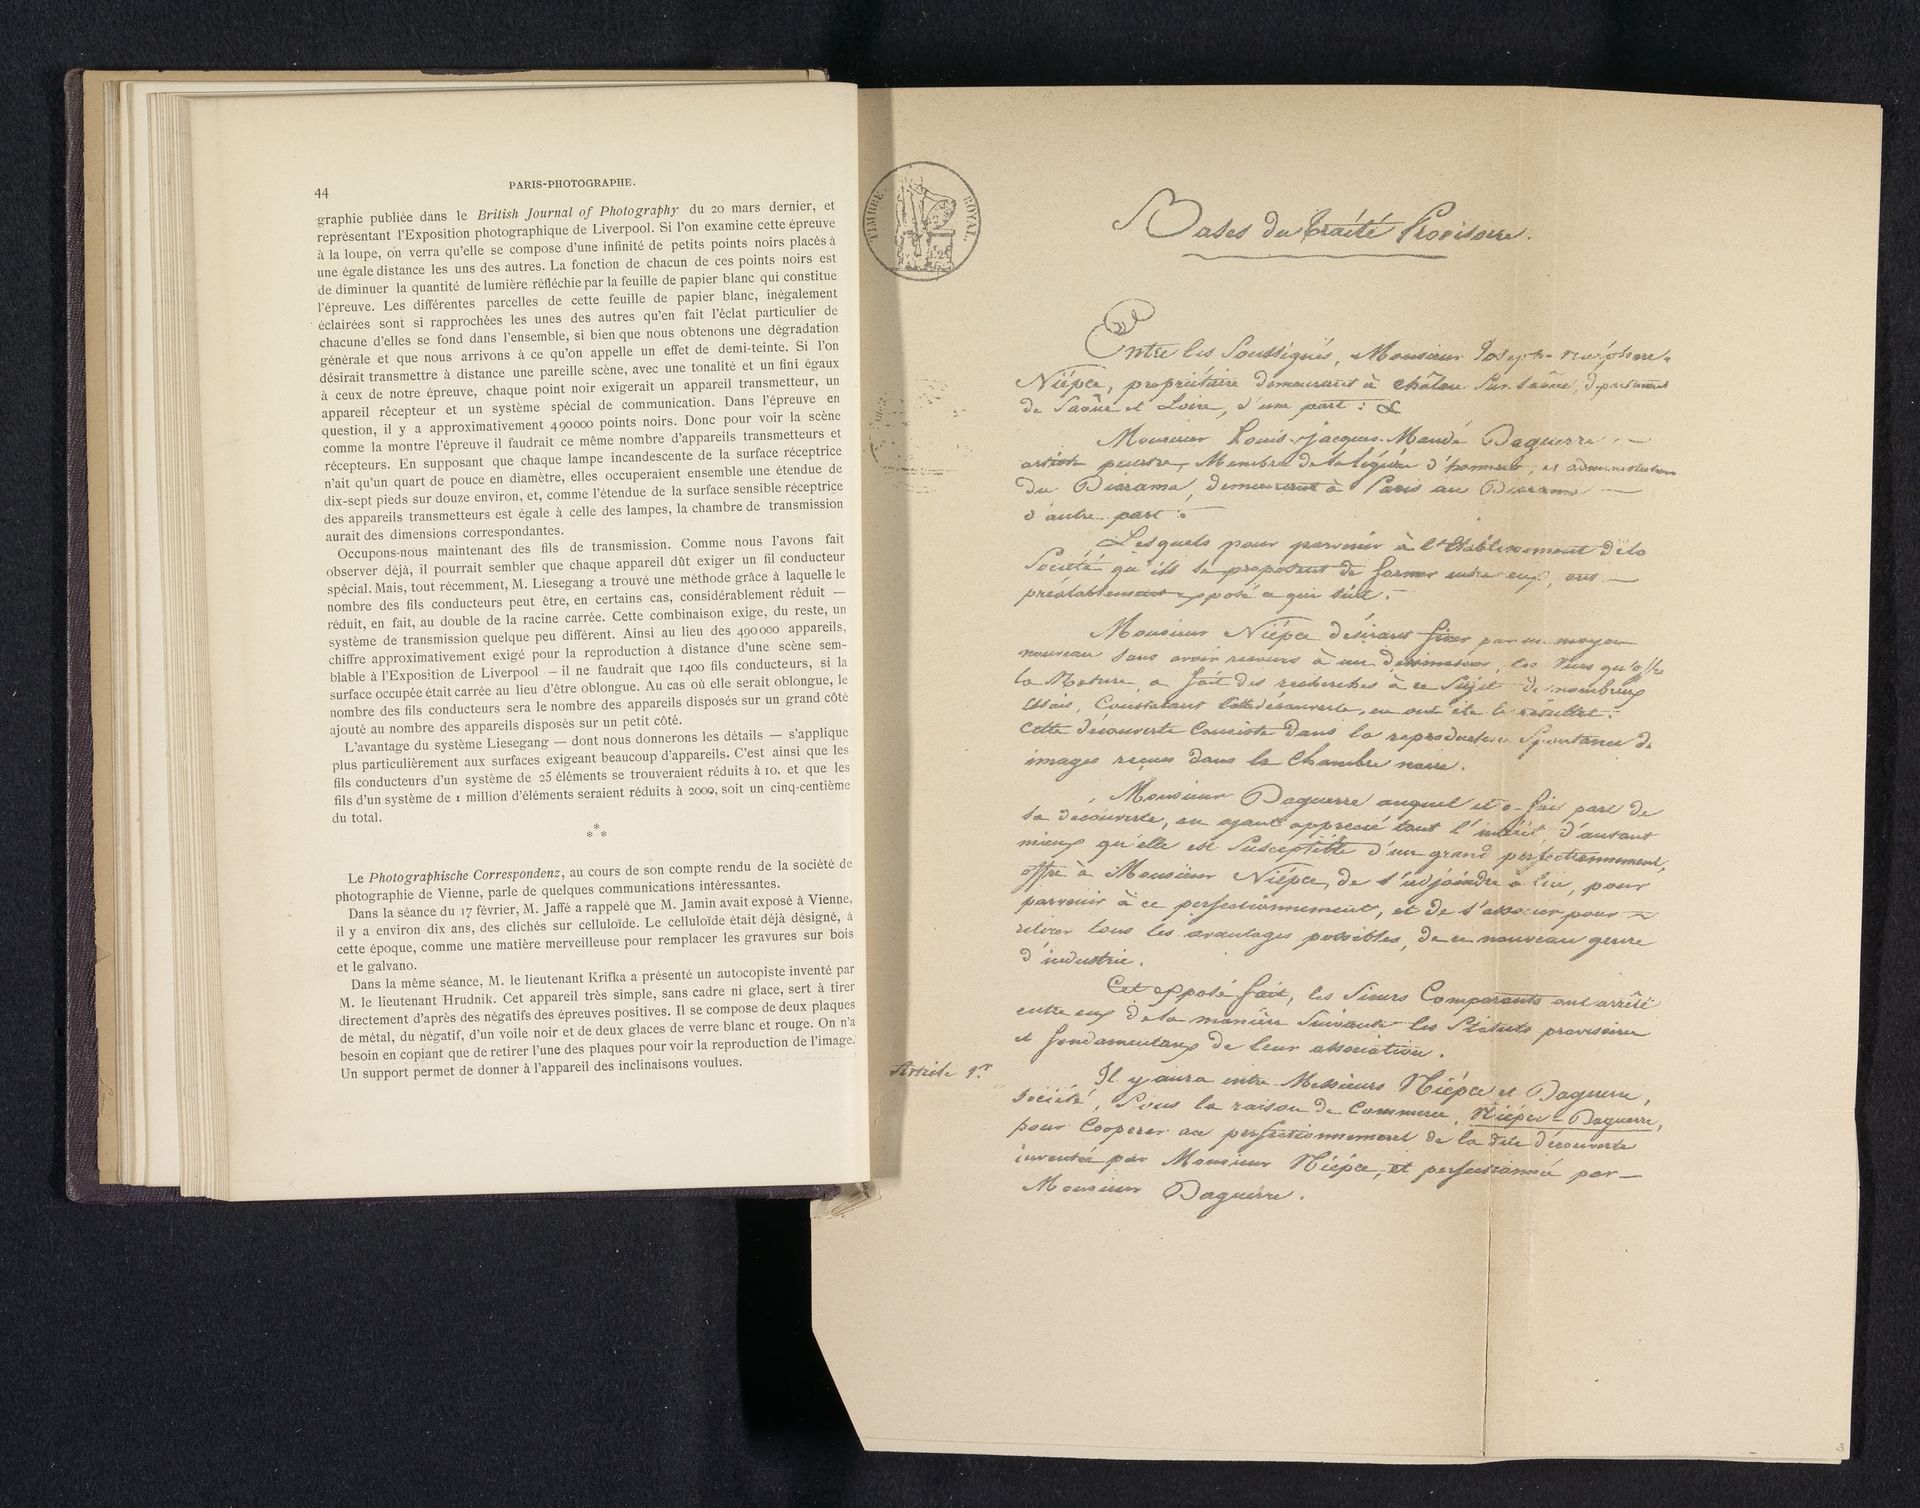 44
PARIS-PHOTOGRAPHE.
graphie publiée dans le British Journal of Photography du 20 mars dernier, et
représentant l'Exposition photographique de Liverpool. Si l'on examine cette épreuve
à la loupe, on verra qu'elle se compose d'une infinité de petits points noirs placés à
une égale distance les uns des autres. La fonction de chacun de ces points noirs est
de diminuer la quantité de lumière réfléchie par la feuille de papier blanc qui constitue
l'épreuve. Les différentes parcelles de cette feuille de papier blanc, inégalement
éclairées sont si rapprochées les unes des autres qu'en fait l'éclat particulier de
chacune d'elles se fond dans l'ensemble, si bien que nous obtenons une dégradation
générale et que nous arrivons à ce qu'on appelle un effet de demi-teinte. Si l'on
désirait transmettre à distance une pareille scène, avec une tonalité et un fini égaux
à ceux de notre épreuve, chaque point noir exigerait un appareil transmetteur, un
appareil récepteur et un système spécial de communication. Dans l'épreuve en
question, il y a approximativement 490000 points noirs. Donc pour voir la scène
comme la montre l'épreuve il faudrait ce même nombre d'appareils transmetteurs et
récepteurs. En supposant que chaque lampe incandescente de la surface réceptrice
n'ait qu'un quart de pouce en diamètre, elles occuperaient ensemble une étendue de
dix-sept pieds sur douze environ, et, comme l'étendue de la surface sensible réceptrice
des appareils transmetteurs est égale à celle des lampes, la chambre de transmission
aurait des dimensions correspondantes.
Occupons-nous maintenant des fils de transmission. Comme nous l'avons fait
observer déjà, il pourrait sembler que chaque appareil dût exiger un fil conducteur
spécial. Mais, tout récemment, M. Liesegang a trouvé une méthode grâce à laquelle le
nombre des fils conducteurs peut être, en certains cas, considérablement réduit —
réduit, en fait, au double de la racine carrée. Cette combinaison exige, du reste, un
système de transmission quelque peu différent. Ainsi au lieu des 490000 appareils,
chiffre approximativement exigé pour la reproduction à distance d'une scène sem-
blable à l'Exposition de Liverpool — il ne faudrait que 1400 fils conducteurs, si la
surface occupée était carrée au lieu d'être oblongue. Au cas où elle serait oblongue, le
nombre des fils conducteurs sera le nombre des appareils disposés sur un grand côté
ajouté au nombre des appareils disposés sur un petit côté.
L'avantage du système Liesegang — dont nous donnerons les détails — s'applique
plus particulièrement aux surfaces exigeant beaucoup d'appareils. C'est ainsi que les
fils conducteurs d'un système de 25 éléments se trouveraient réduits à 10, et que les
fils d'un système de 1 million d'éléments seraient réduits à 2000, soit un cinq-centième
du total.
* * *
Le Photographische Correspondenz, au cours de son compte rendu de la société de
photographie de Vienne, parle de quelques communications intéressantes.
Dans la séance du 17 février, M. Jaffé a rappelé que M. Jamin avait exposé à Vienne,
il y a environ dix ans, des clichés sur celluloïde. Le celluloïde était déjà désigné, à
cette époque, comme une matière merveilleuse pour remplacer les gravures sur bois
et le galvano.
Dans la même séance, M. le lieutenant Krifka a présenté un autocopiste inventé par
M. le lieutenant Hrudnik. Cet appareil très simple, sans cadre ni glace, sert à tirer
directement d'après des négatifs des épreuves positives. Il se compose de deux plaques
de métal, du négatif, d'un voile noir et de deux glaces de verre blanc et rouge. On n'a
besoin en copiant que de retirer l'une des plaques pour voir la reproduction de l'image.
Un support permet de donner à l'appareil des inclinaisons voulues.
TIMBRE ROYAL.
Bases du traité Provisoire.
Entre les Soussignés, Monsieur Joseph Nicéphore
Niépce, propriétaire demeurant à Châlon Sur Saône, département
de Saône et Loire, d'une part : &
Monsieur Louis-Jacques-Mandé Daguerre,
artiste peintre, Membre de la légion d'honneur, et administrateur
du Diorama, demeurant à Paris au Diorama
d'autre part :
Lesquels pour parvenir à l'Etablissement de la
Société qu'ils se proposent de former entre eux, ont
préalablement exposé ce qui suit :
Monsieur Niépce désirant fixer par un moyen
nouveau sans avoir recours à un dessinateur, les vues qu'offre
la Nature, a fait des recherches à ce Sujet de nombreux
Essais, Constatant cette découverte, en ont été le résultat.
Cette découverte Consiste dans la reproduction Spontanée de
images reçues dans la Chambre noire.
Monsieur Daguerre auquel il a fait part de
sa découverte, en ayant apprécié tout l'intérêt d'autant
mieux qu'elle est Susceptible d'un grand perfectionnement,
offre à Monsieur Niépce, de s'adjoindre à lui, pour
parvenir à ce perfectionnement, et de s'associer pour
retirer tous les avantages possibles, de ce nouveau genre
d'industrie.
Cet exposé fait, les Sieurs Comparants ont arrêté
entre eux de la manière Suivante les Statuts provisoires
et fondamentaux de leur association.
Article 1er
Il y aura entre Messieurs Niépce et Daguerre,
société, Sous la raison de Commerce Niépce-Daguerre,
pour Coopérer au perfectionnement de la dite découverte
inventée par Monsieur Niépce, et perfectionnée par
Monsieur Daguerre.
3